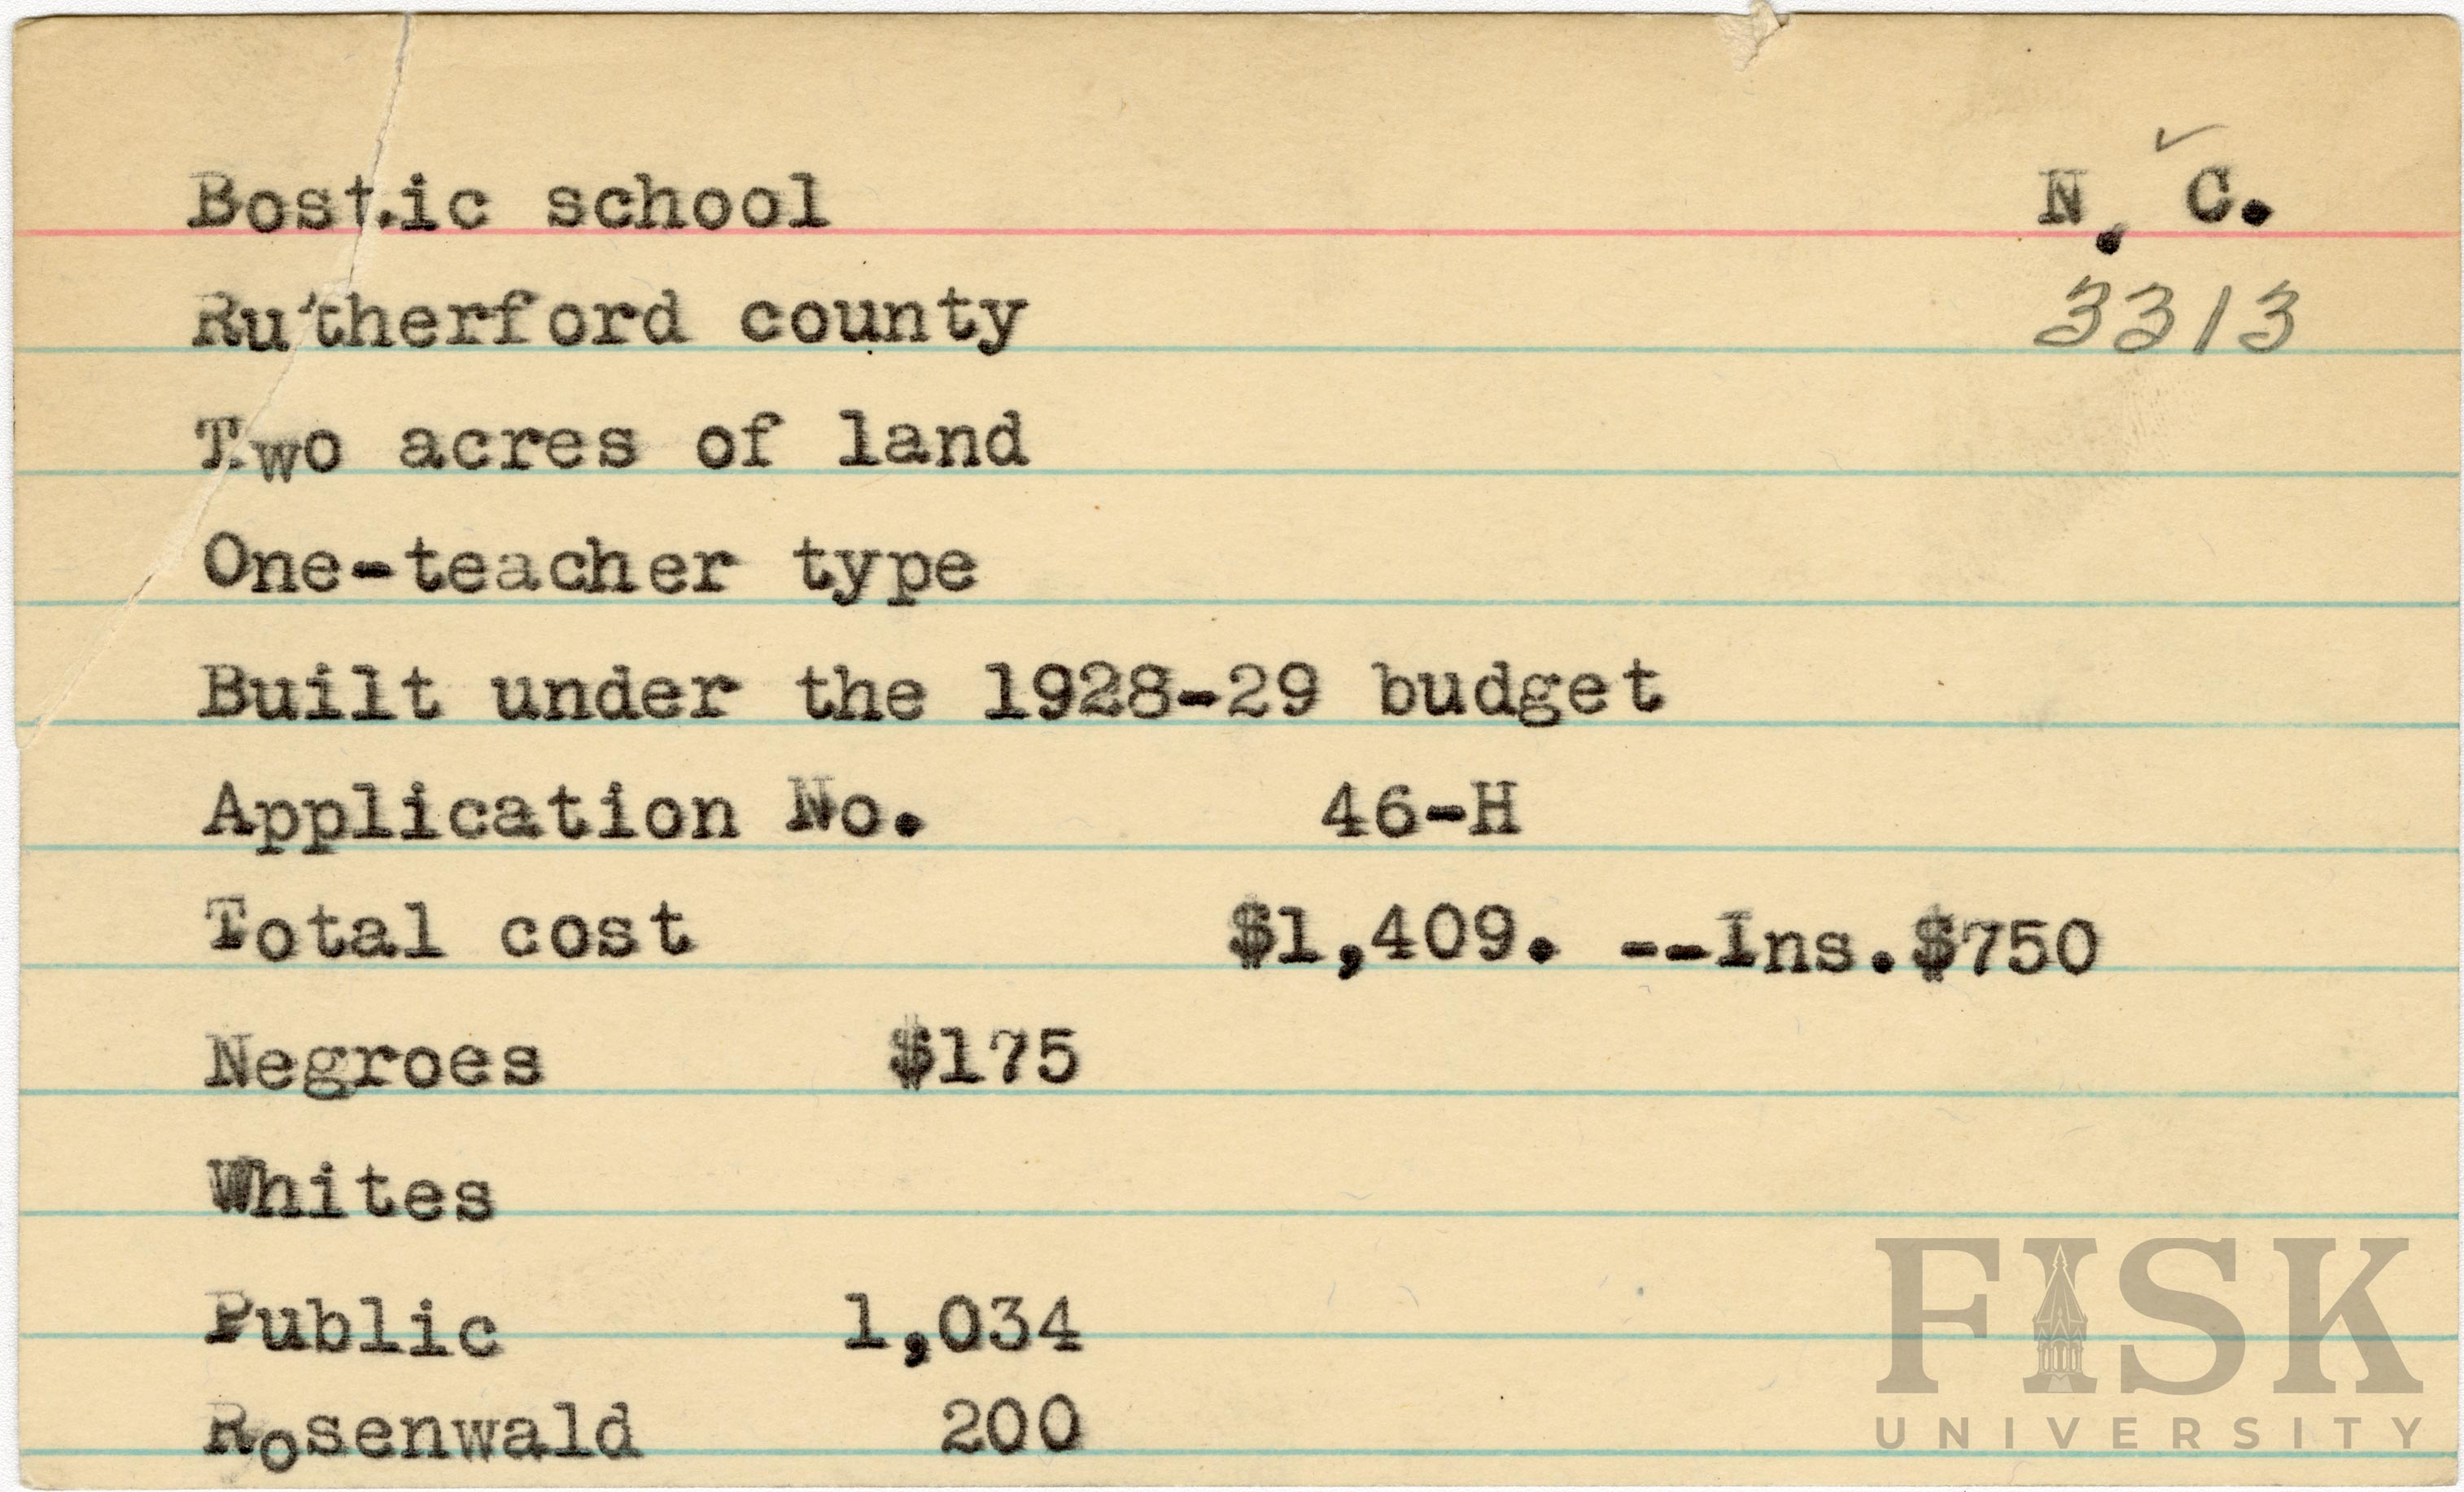 Bostic school N. C.
Rutherford county 3313
Two acres of land
One-teacher type
Built under the 1928-29 budget
Application No. 46-H
Total cost $1,409. --Ins.$750
Negroes $175
Whites
Public 1,034
Rosenwald 200
FISK
UNIVERSITY